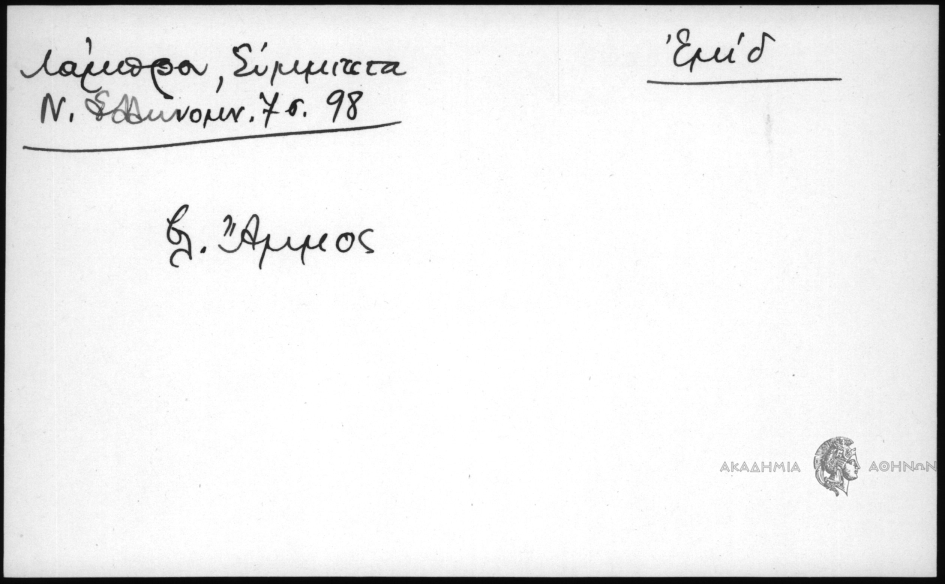 Λάμπρου, Σύμμικτα
Ν. Ἑλληνομν. 7 σ. 98
Ἐμίδ
βλ. Ἄμμος
ΑΚΑΔΗΜΙΑ ΑΘΗΝΩΝ